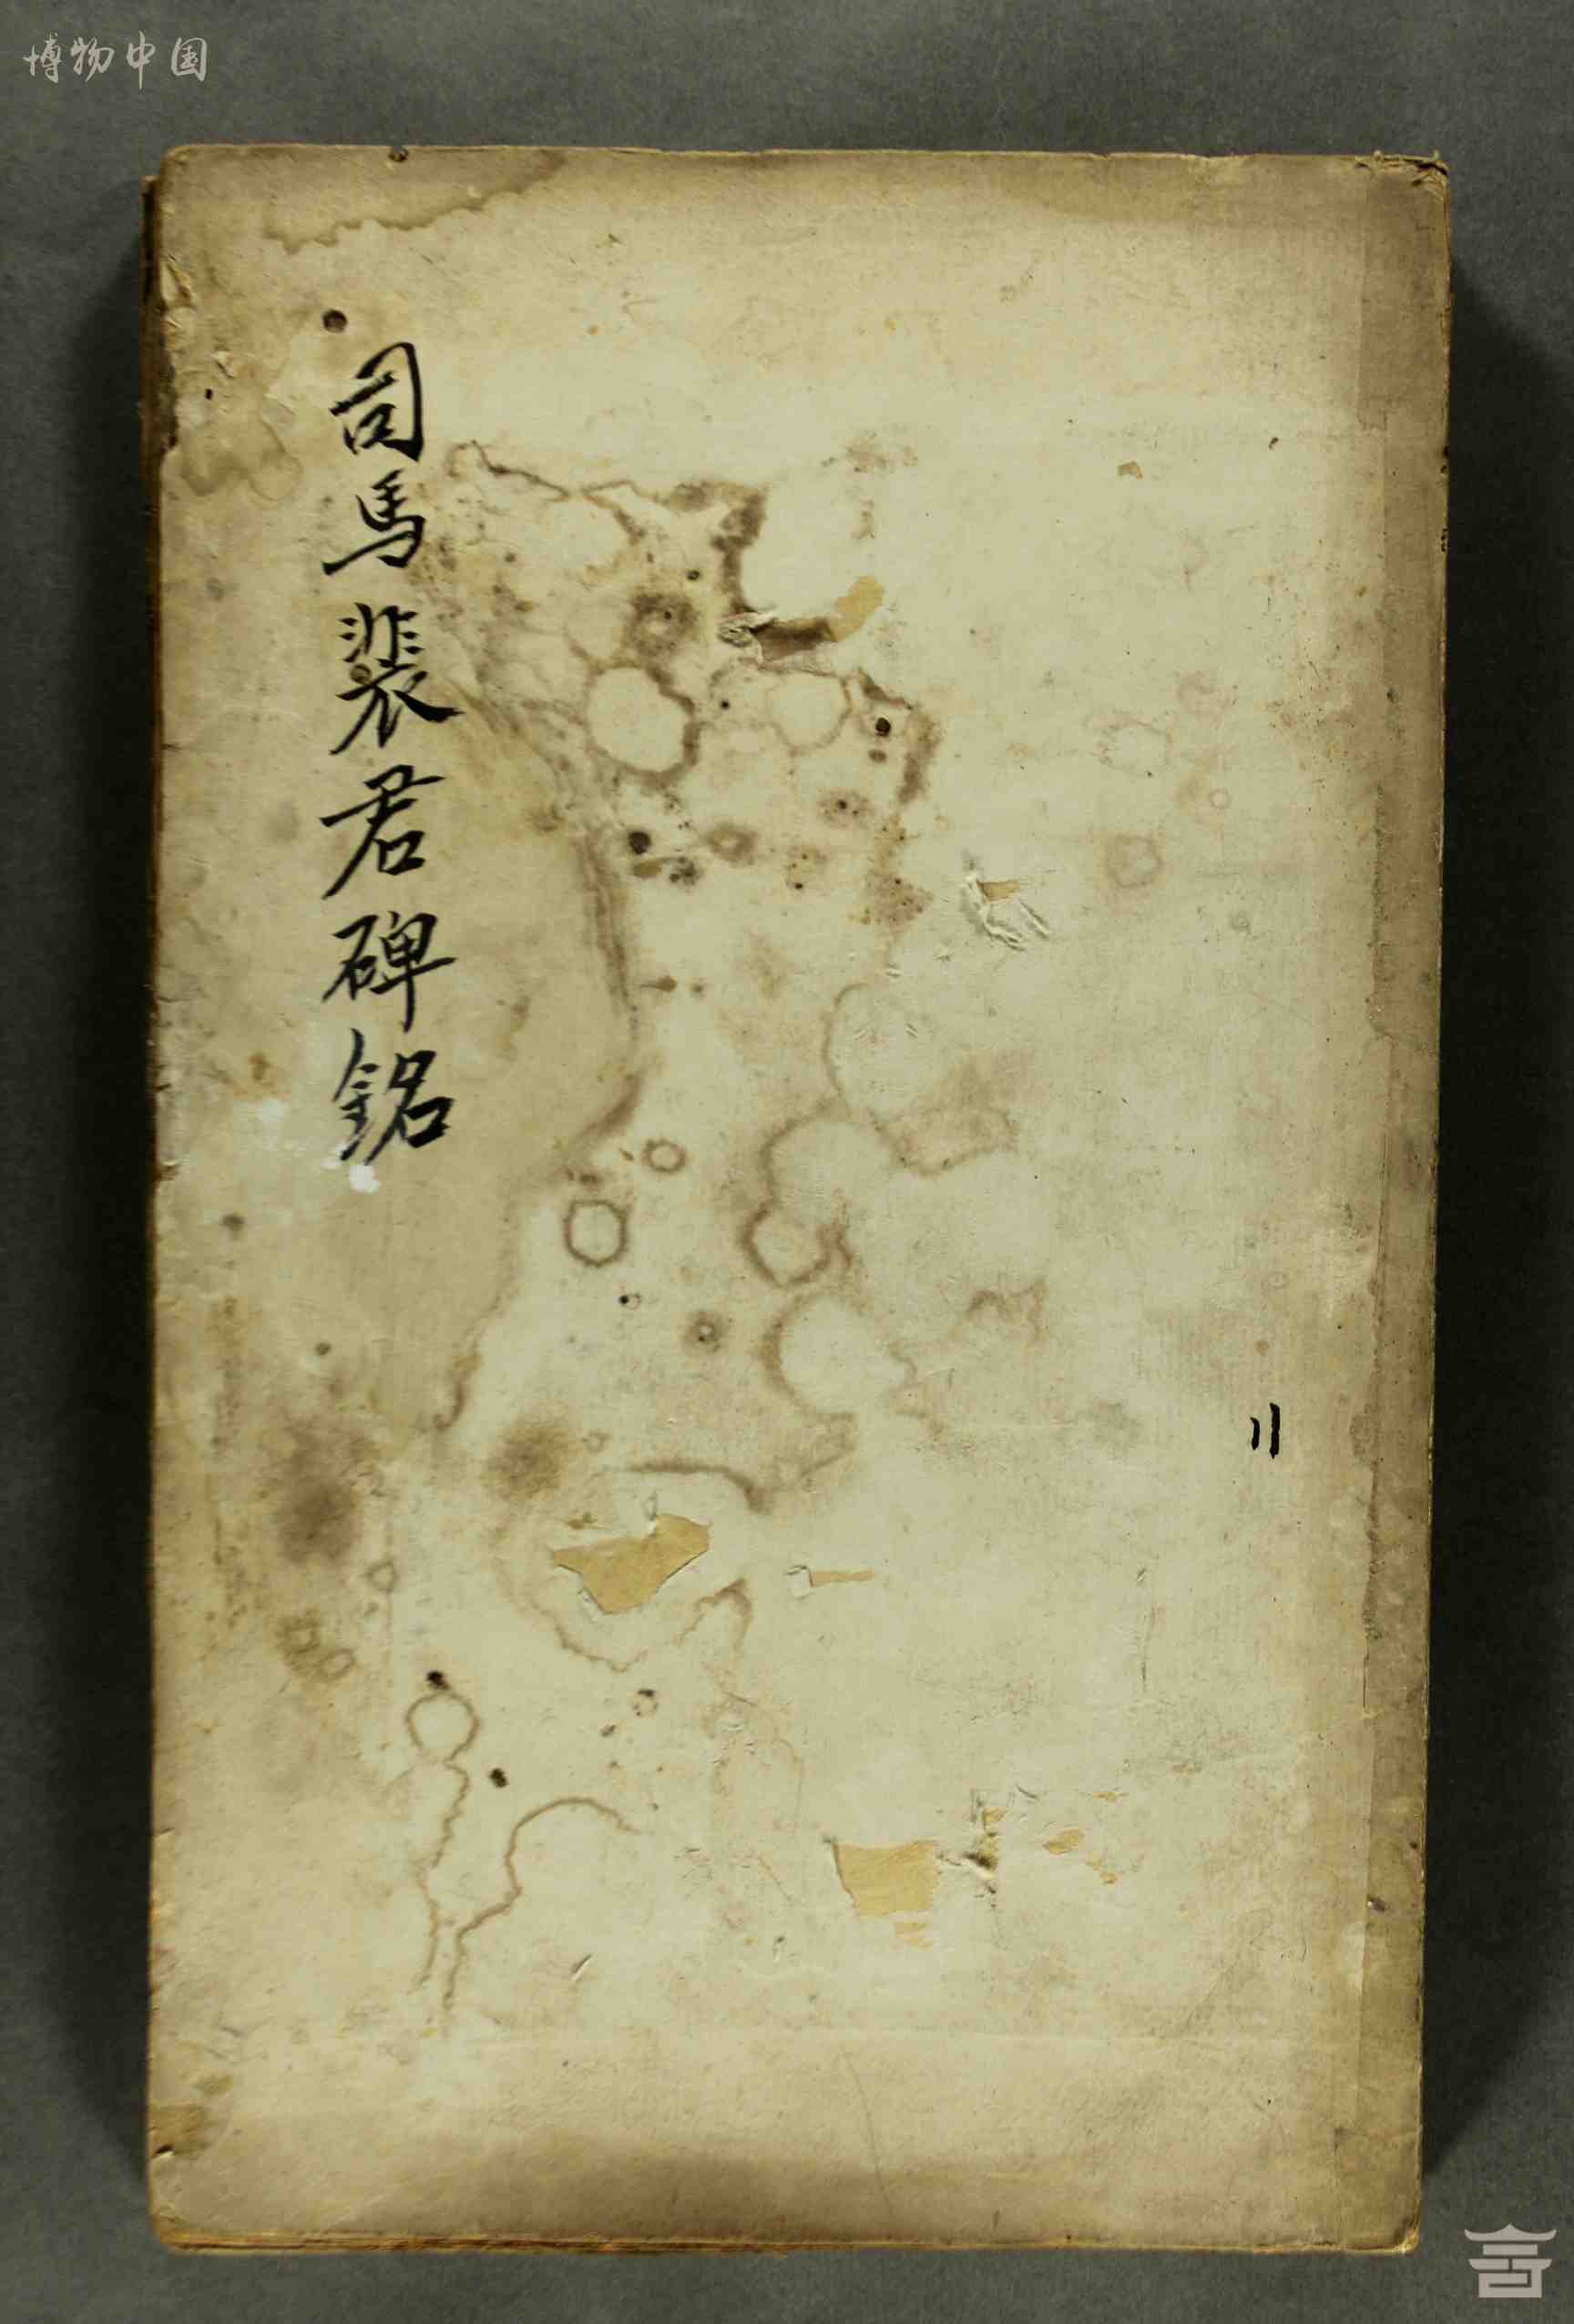 博物中国
司馬裴君碑銘
〢